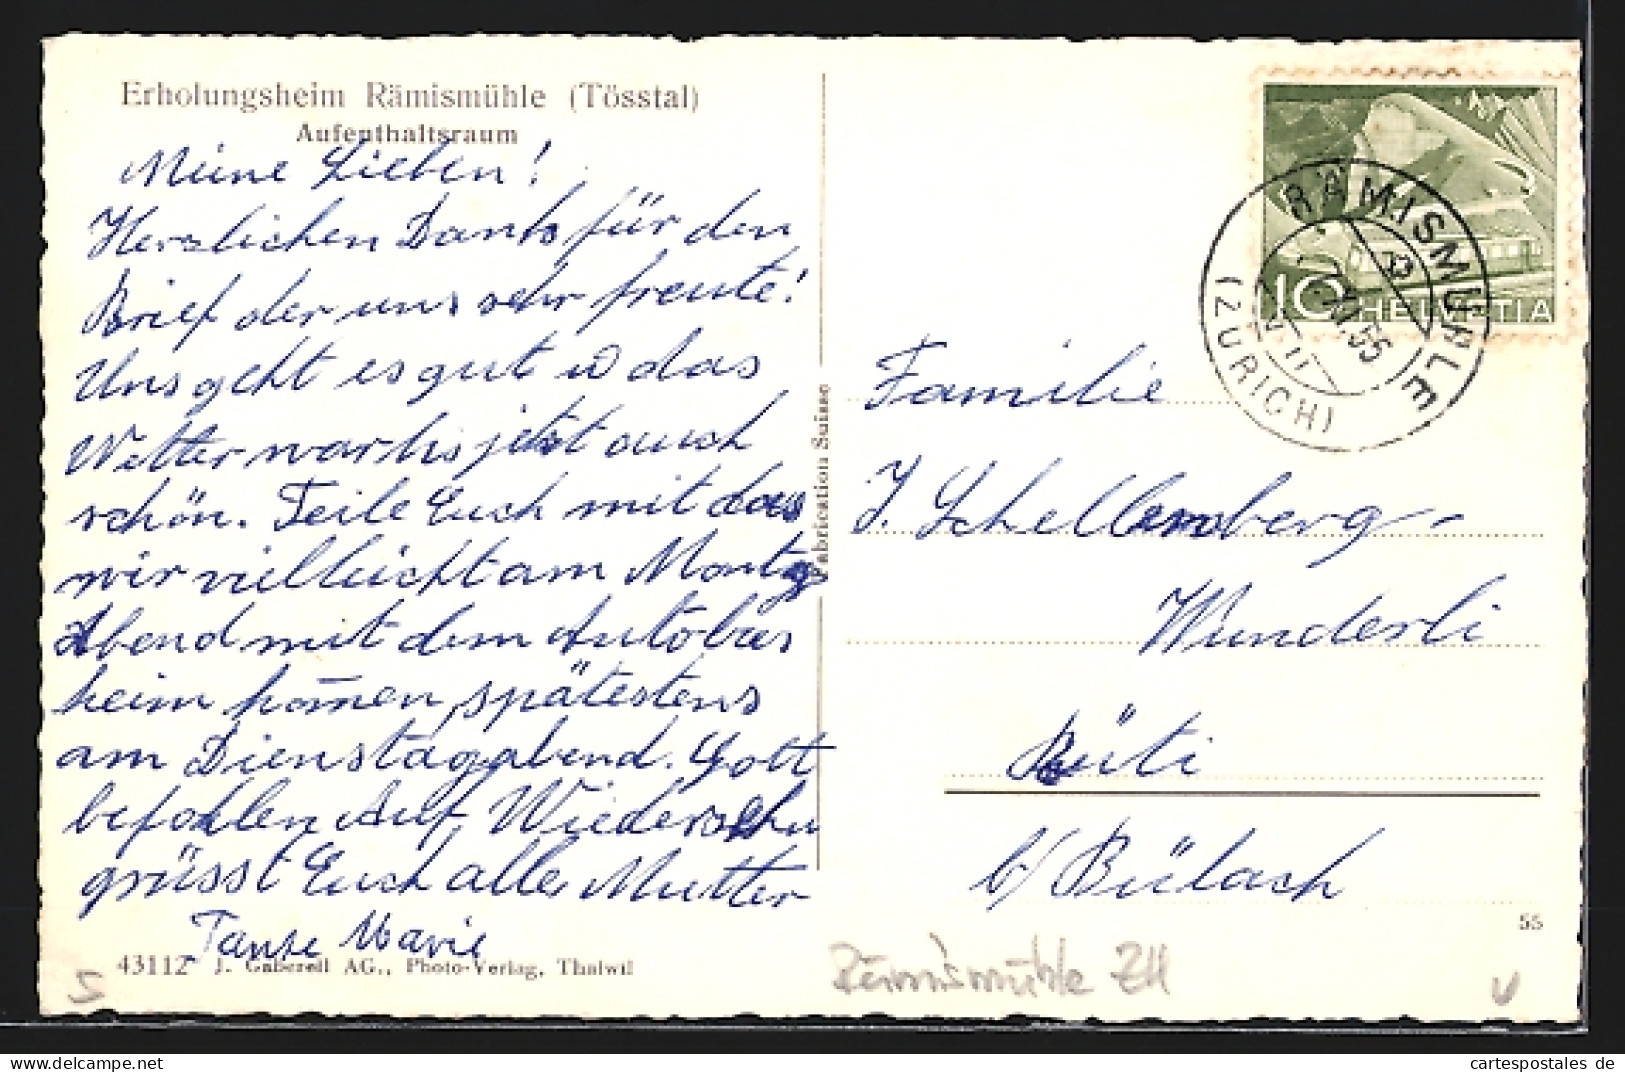 Erholungsheim Rämismühle (Tösstal)
Aufenthaltsraum
Meine Lieben!
Herzlichen Dank für den
Brief der uns sehr freute!
Uns geht es gut u das
Wetter war bis jetzt auch
schön. Teile Euch mit das
wir vielleicht am Montag
Abend mit dem Autobus
heim kom̄en, spätestens
am Dienstagabend. Gott
befohlen Auf Wiedersehn
grüsst Euch alle Mutter
Tante Marie
43112 J. Gaberell AG., Photo-Verlag, Thalwil
Fabrication Suisse
10 HELVETIA
RÄMISMÜHLE
(ZÜRICH)
Familie
J. Schellenberg-
Wunderli
Rüti
b/ Bülach
55
Rämismühle ZH
cartespostales de